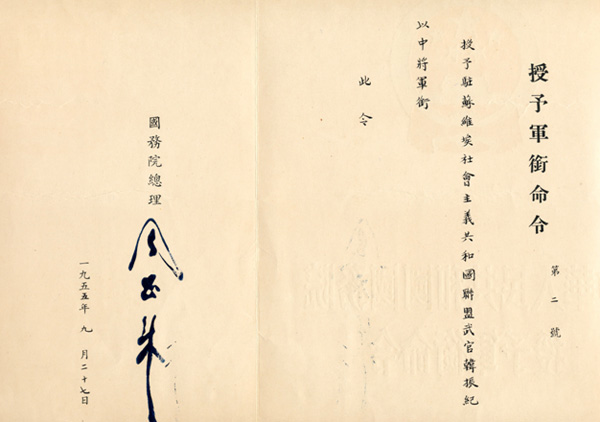 授予軍銜命令
第二號
授予駐蘇維埃社會主義共和國聯盟武官韓振紀
以中將軍銜
此令
國務院總理
周恩來
一九五五年九月二十七日